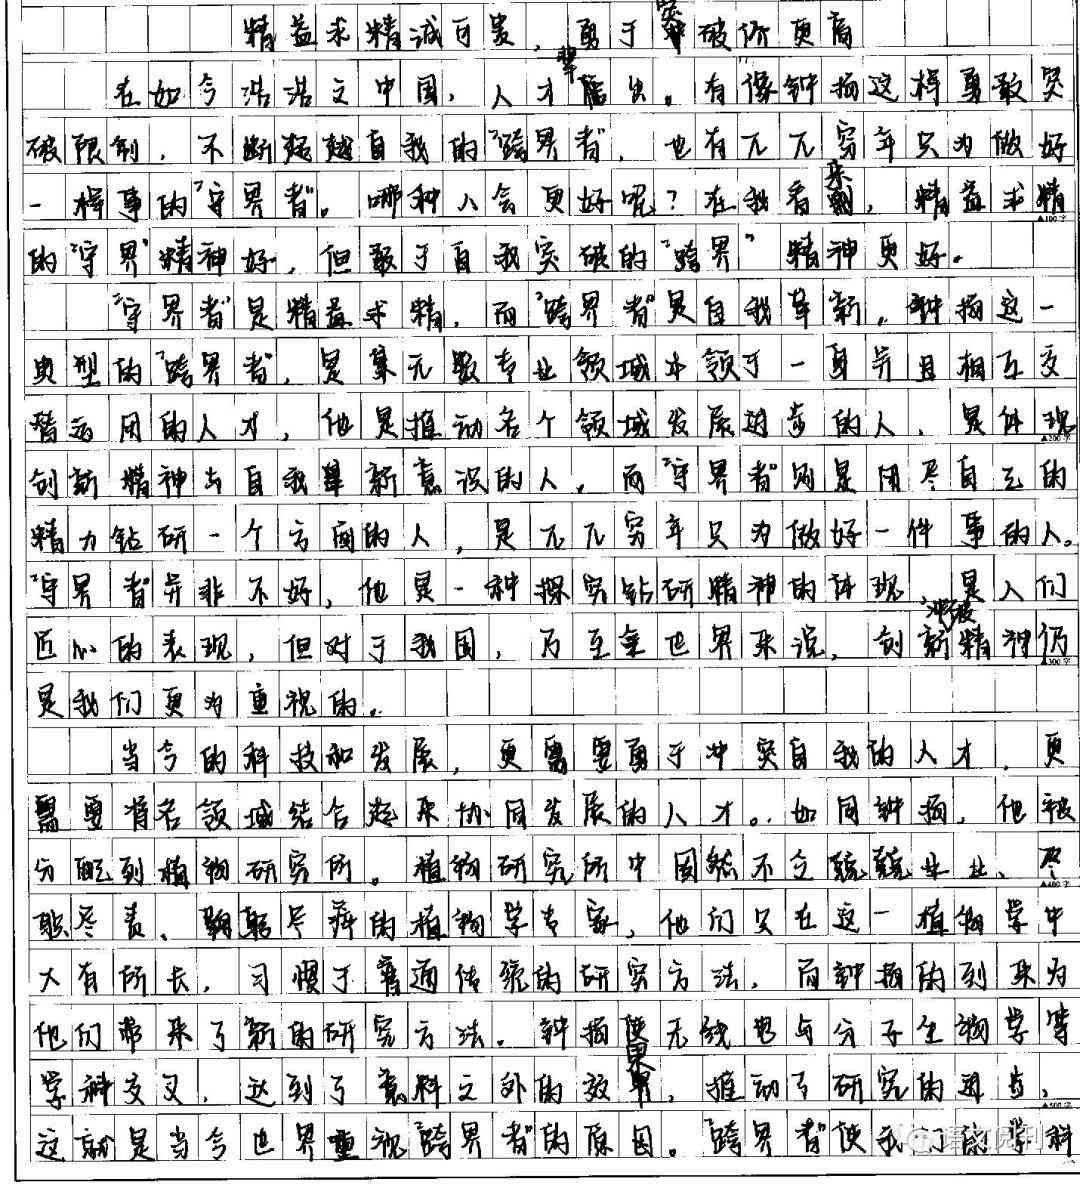 精益求精诚可贵，勇于突破价更高
在如今浩浩文中国，人才辈出。有像钟扬这样勇敢突
破限制，不断超越自我的“跨界者”，也有兀兀穷年只为做好
一样事的“守界者”。哪种人会更好呢？在我看来，精益求精
的“守界”精神好，但敢于自我突破的“跨界”精神更好。
“守界者”是精益求精，而“跨界者”是自我革新。钟扬这一
典型的“跨界者”，是集无数专业领域本领于一身并且相互交
替运用的人才，他是推动各个领域发展进步的人，是体现
创新精神与自我革新意识的人，而“守界者”则是用尽自己的
精力钻研一个方面的人，是兀兀穷年只为做好一件事的人。
“守界者”并非不好，他是一种探究钻研精神的体现，是人们
匠心的表现，但对于我国，乃至全世界来说，创新冲破精神仍
是我们更为重视的。
当今的科技和发展，更需要勇于冲突自我的人才，更
需要将各领域结合起来协同发展的人才。如同钟扬，他被
分配到植物研究所。植物研究所中固然不乏兢兢业业、尽
职尽责、鞠躬尽瘁的植物学专家，他们只在这一植物学中
大有所长，习惯于普通传统的研究方法，而钟扬的到来为
他们带来了新的研究方法。钟扬使无线电与分子生物学等
学科交叉，达到了意料之外的效果，推动了研究的进步，
这就是当今世界重视“跨界者”的原因。“跨界者”使我们的学科
▲100字
▲200字
▲300字
▲400字
▲500字
语文阅刊